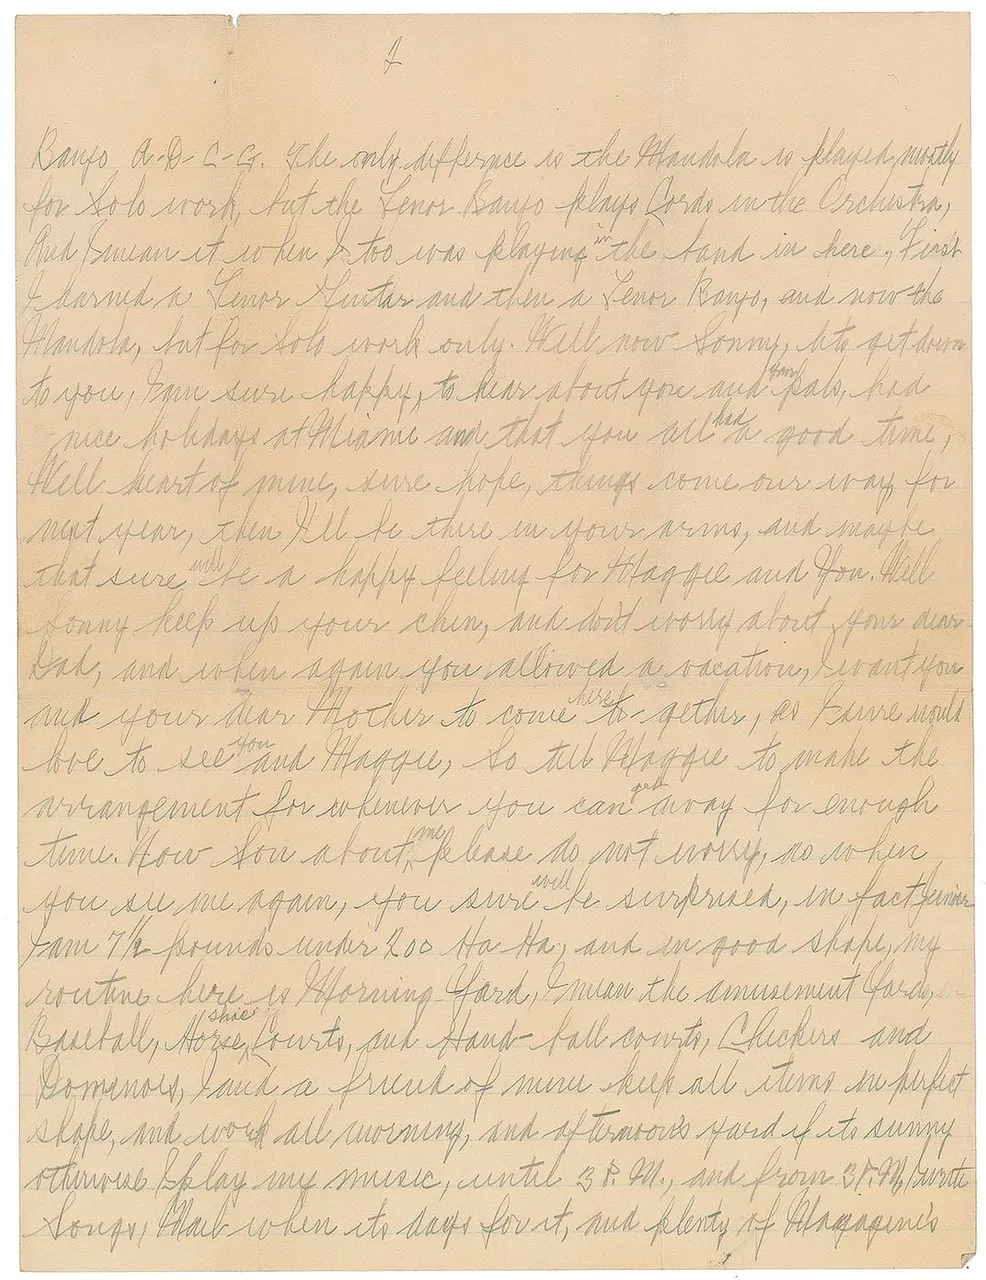 2
Banjo A-D-C-G. The only differnce is the Mandola is played mostly
for Solo work, but the Tenor Banjo plays Cords in the Orchestra,
And I mean it when I too was playing in the band in here, First
I learned a Tenor Guitar and then a Tenor Banjo, and now the
Mandola, but for Solo work only. Well now Sonny, lets get down
to you, I am sure happy, to hear about you and pals, had
nice holidays at Miami and that you all had a good time,
Well heart of mine, sure hope, things come our way for
next year, then I'll be there in your arms, and maybe
that sure will be a happy feeling for Maggie and You. Well
Sonny keep up your chin, and don't worry about your dear
Dad, and when again you allowed a vacation, I want you
and your dear Mother to come here to-gether, as I sure would
love to see you and Maggie, So tell Maggie to make the
arrangement for whenever you can get away for enough
time. Now Son about, me, please do not worry, as when
you see me again, you sure will be surprised, in fact Junior
I am 7½ pounds under 200 Ha Ha, and in good shape, my
routine here is Morning Yard, I mean the amusement Yard,
Baseball, Horse, shoe Courts, and Hand-ball courts, Checkers and
Domenoes, I and a friend of mine keep all items in perfect
shape, and work all morning, and afternoon's yard if its sunny
otherwise I play my music, until 3 P.M., and from 3 P.M, I write
Songs, Mail when its days for it, and plenty of Magazine's